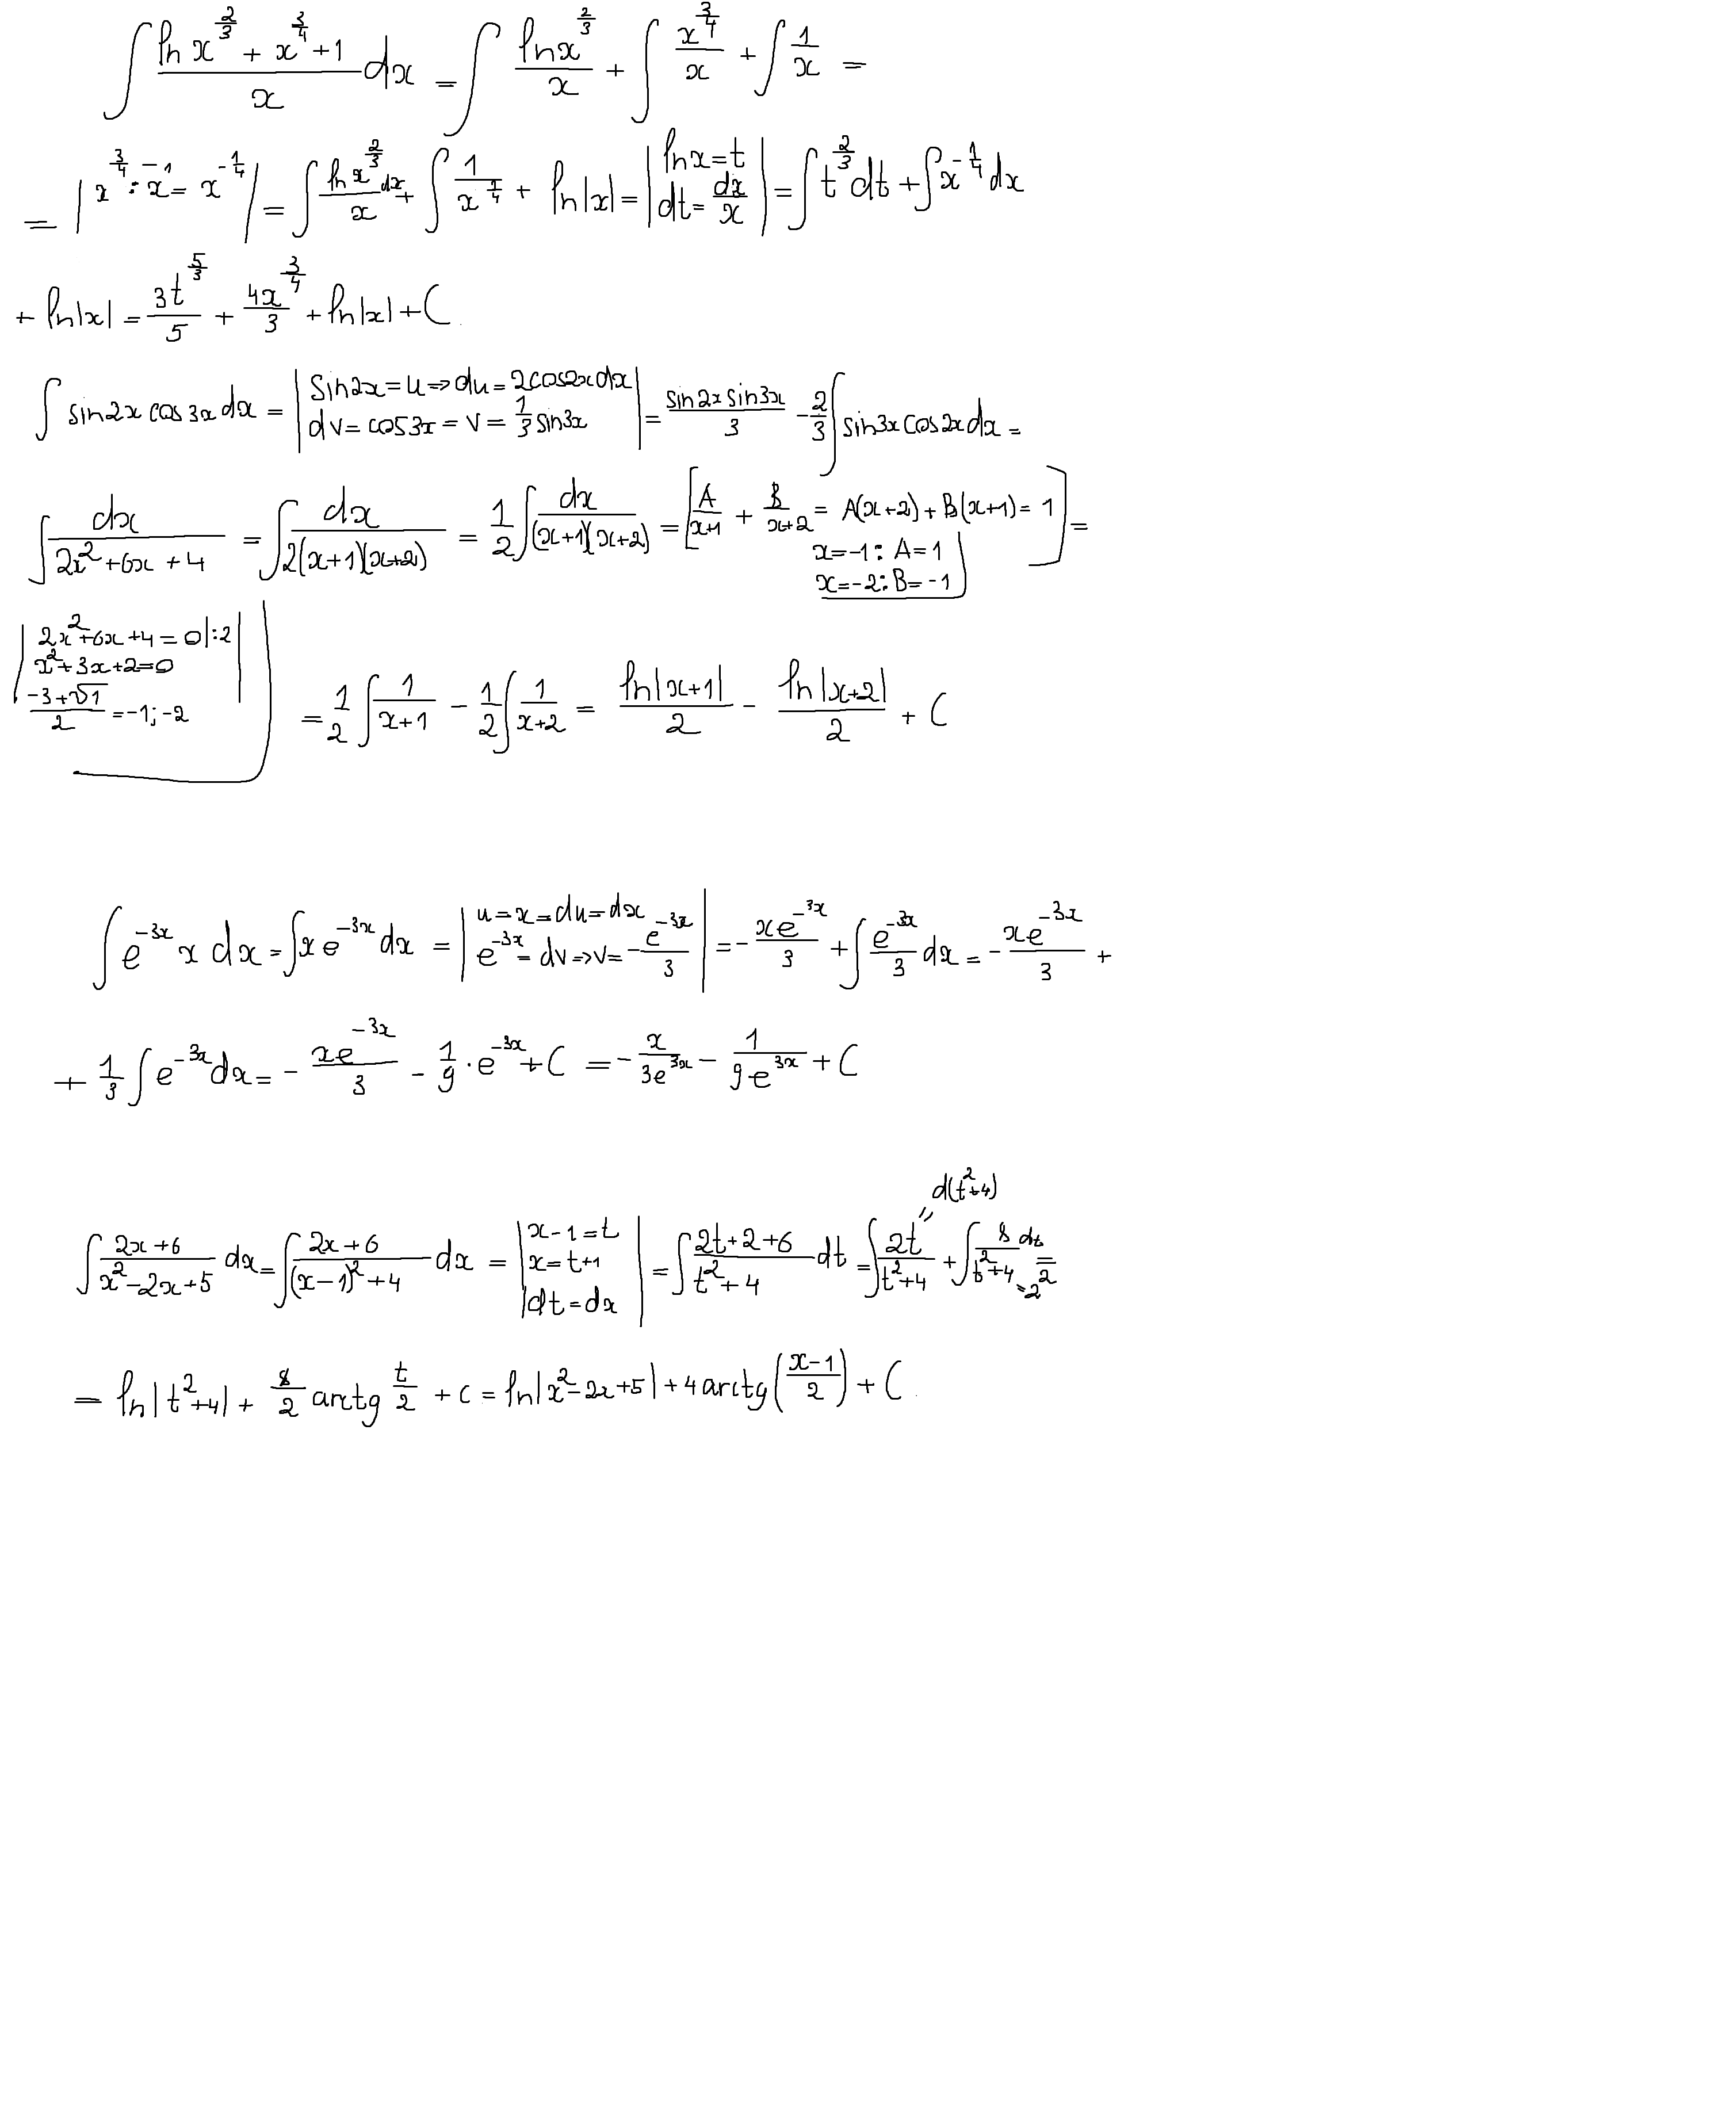 ∫ (ln x^(2/3) + x^(3/4) + 1)/x dx = ∫ (ln x^(2/3))/x + ∫ x^(3/4)/x + ∫ 1/x =
= | x^(3/4) : x^1 = x^(-1/4) | = ∫ (ln x^(2/3))/x dx + ∫ 1/x^(1/4) + ln|x| = | ln x = t dt = dx/x | = ∫ t^(2/3) dt + ∫ x^(-1/4) dx
+ ln|x| = 3t^(5/3)/5 + 4x^(3/4)/3 + ln|x| + C
∫ sin2x cos3x dx = | sin2x = u => du = 2cos2x dx dv = cos3x = v = 1/3 sin3x | = (sin2x sin3x)/3 - 2/3 ∫ sin3x cos2x dx =
∫ dx/(2x^2+6x+4) = ∫ dx/(2(x+1)(x+2)) = 1/2 ∫ dx/((x+1)(x+2)) = [ A/(x+1) + B/(x+2) = A(x+2) + B(x+1) = 1 ] =
x = -1 : A = 1
x = -2 : B = -1
2x^2+6x+4 = 0 |:2
x^2+3x+2=0
(-3+√1)/2 = -1; -2
= 1/2 ∫ 1/(x+1) - 1/2 ∫ 1/(x+2) = ln|x+1|/2 - ln|x+2|/2 + C
∫ e^(-3x) x dx = ∫ x e^(-3x) dx = | u = x = du = dx e^(-3x) = dv => v = - e^(-3x)/3 | = - xe^(-3x)/3 + ∫ e^(-3x)/3 dx = - xe^(-3x)/3 +
+ 1/3 ∫ e^(-3x) dx = - xe^(-3x)/3 - 1/9 · e^(-3x) + C = - x/(3e^(3x)) - 1/(9e^(3x)) + C
d(t^2+4)
∫ (2x+6)/(x^2-2x+5) dx = ∫ (2x+6)/((x-1)^2+4) dx = | x-1 = t x = t+1 dt = dx | = ∫ (2t+2+6)/(t^2+4) dt = ∫ 2t/(t^2+4) + ∫ 8 dt/(t^2+4) =
= 2^2
= ln|t^2+4| + 8/2 arctg t/2 + C = ln|x^2-2x+5| + 4 arctg((x-1)/2) + C